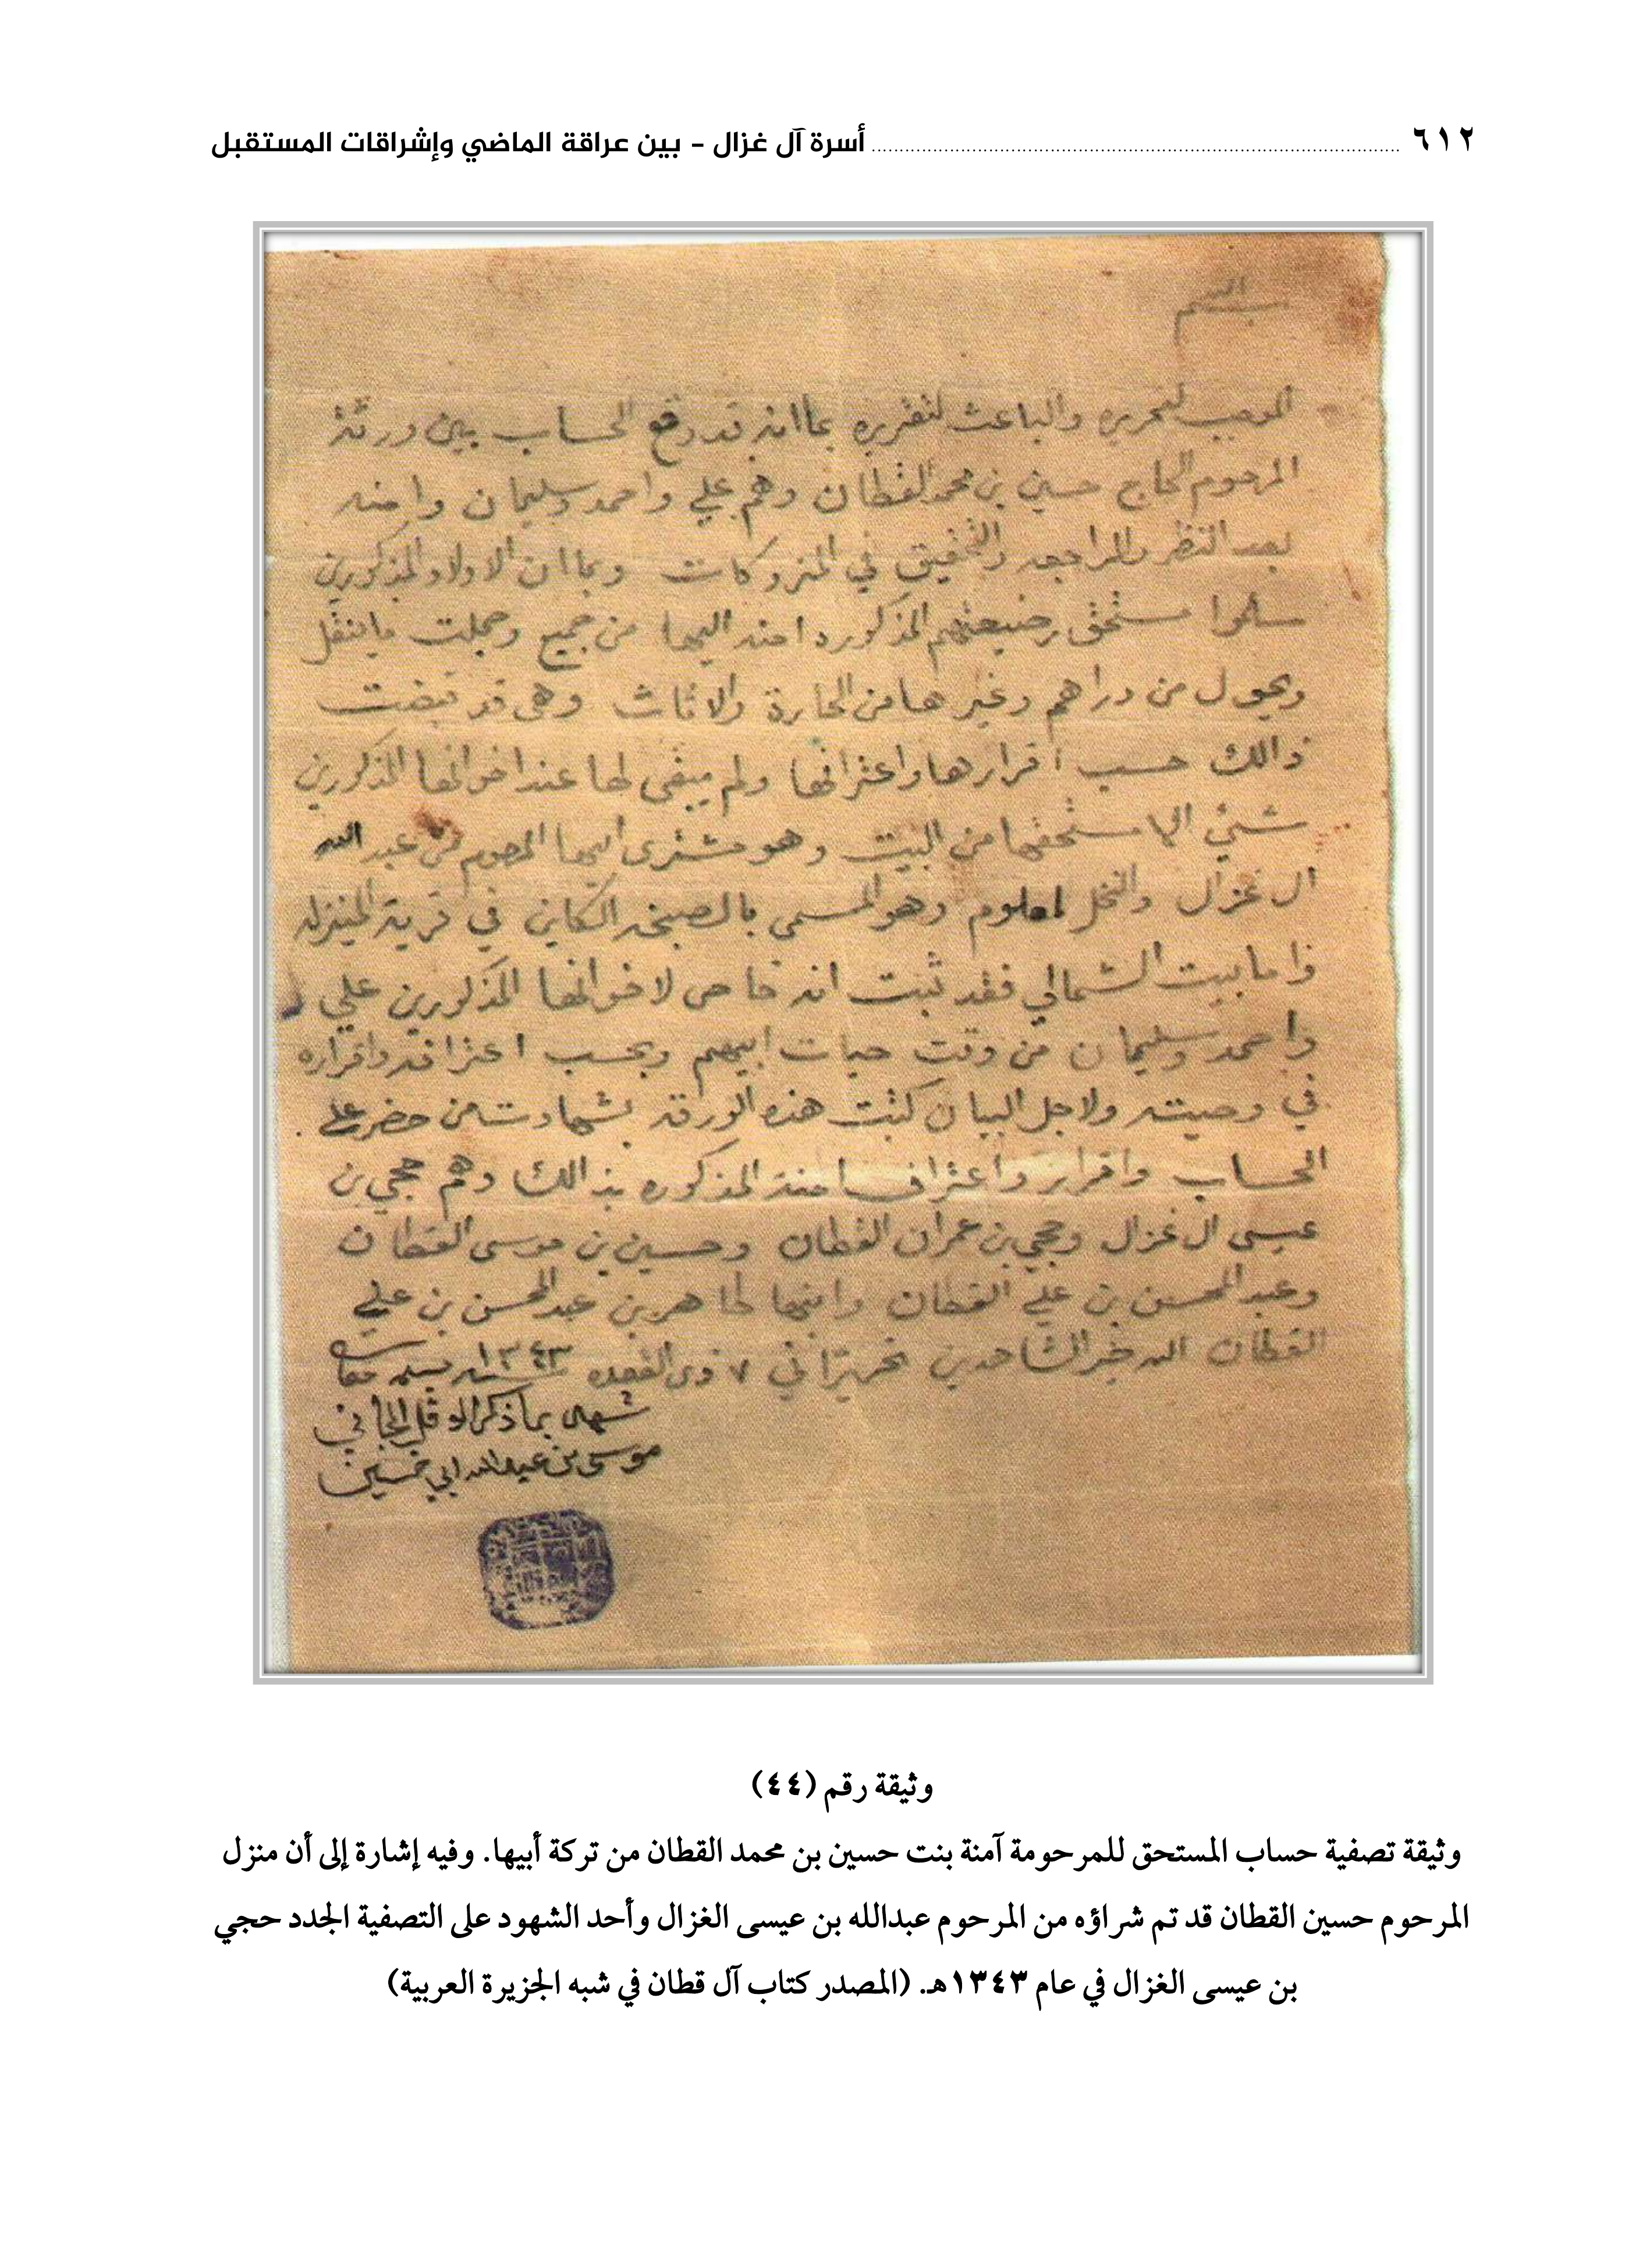 ٦١٢ أسرة آل غزال - بين عراقة الماضي وإشراقات المستقبل
بسم الله
الموجب لتحريره والباعث لتقريره بما انه قد وقع الحساب بين ورثة
المرحوم الحاج حسين بن محمد القطان وهم علي واحمد وسليمان وامنه
بعد النظر والمراجعه والتحقيق في المتروكات وبما ان الاولاد المذكورين
سلموا مستحق رضيعتهم المذكوره امنه اليها من جميع وجملت ما ينقل
ويحول من دراهم وغيرها من الحارة والاثاث وهي قد قبضت
ذالك حسب اقرارها واعترافها ولم يبقى لها عند اخوانها المذكورين
شيئ الا مستحقها من البيت وهو مشترى ابيها المرحوم من عبد الله
ال غزال والنخل المعلوم وهو المسمى بالصبخه الكاين في قرية المنيزله
واما بيت الشمالي فقد ثبت انه خاص لاخوانها المذكورين علي
واحمد وسليمان من وقت حيات ابيهم وبحسب اعترافه واقراره
في وصيته ولاجل البيان كتبت هذه الورقه بشهادت من حضر على
الحساب واقرار واعتراف امنة المذكوره بذالك وهم حجي بن
عيسى ال غزال وحجي بن عمران القطان وحسين بن موسى القطان
وعبد المحسن بن علي القطان وابنها طاهر بن عبد المحسن بن علي
القطان الله خير الشاهدين تحريرًا في ٧ ذي القعده سنه ١٣٤٣
شهد بما ذكر الاقل الجاني
موسى بن عبد الله ابي خمسين
وثيقة رقم (٤٤)
وثيقة تصفية حساب المستحق للمرحومة آمنة بنت حسين بن محمد القطان من تركة أبيها. وفيه إشارة إلى أن منزل
المرحوم حسين القطان قد تم شراؤه من المرحوم عبدالله بن عيسى الغزال وأحد الشهود على التصفية الجدد حجي
بن عيسى الغزال في عام ١٣٤٣هـ. (المصدر كتاب آل قطان في شبه الجزيرة العربية)